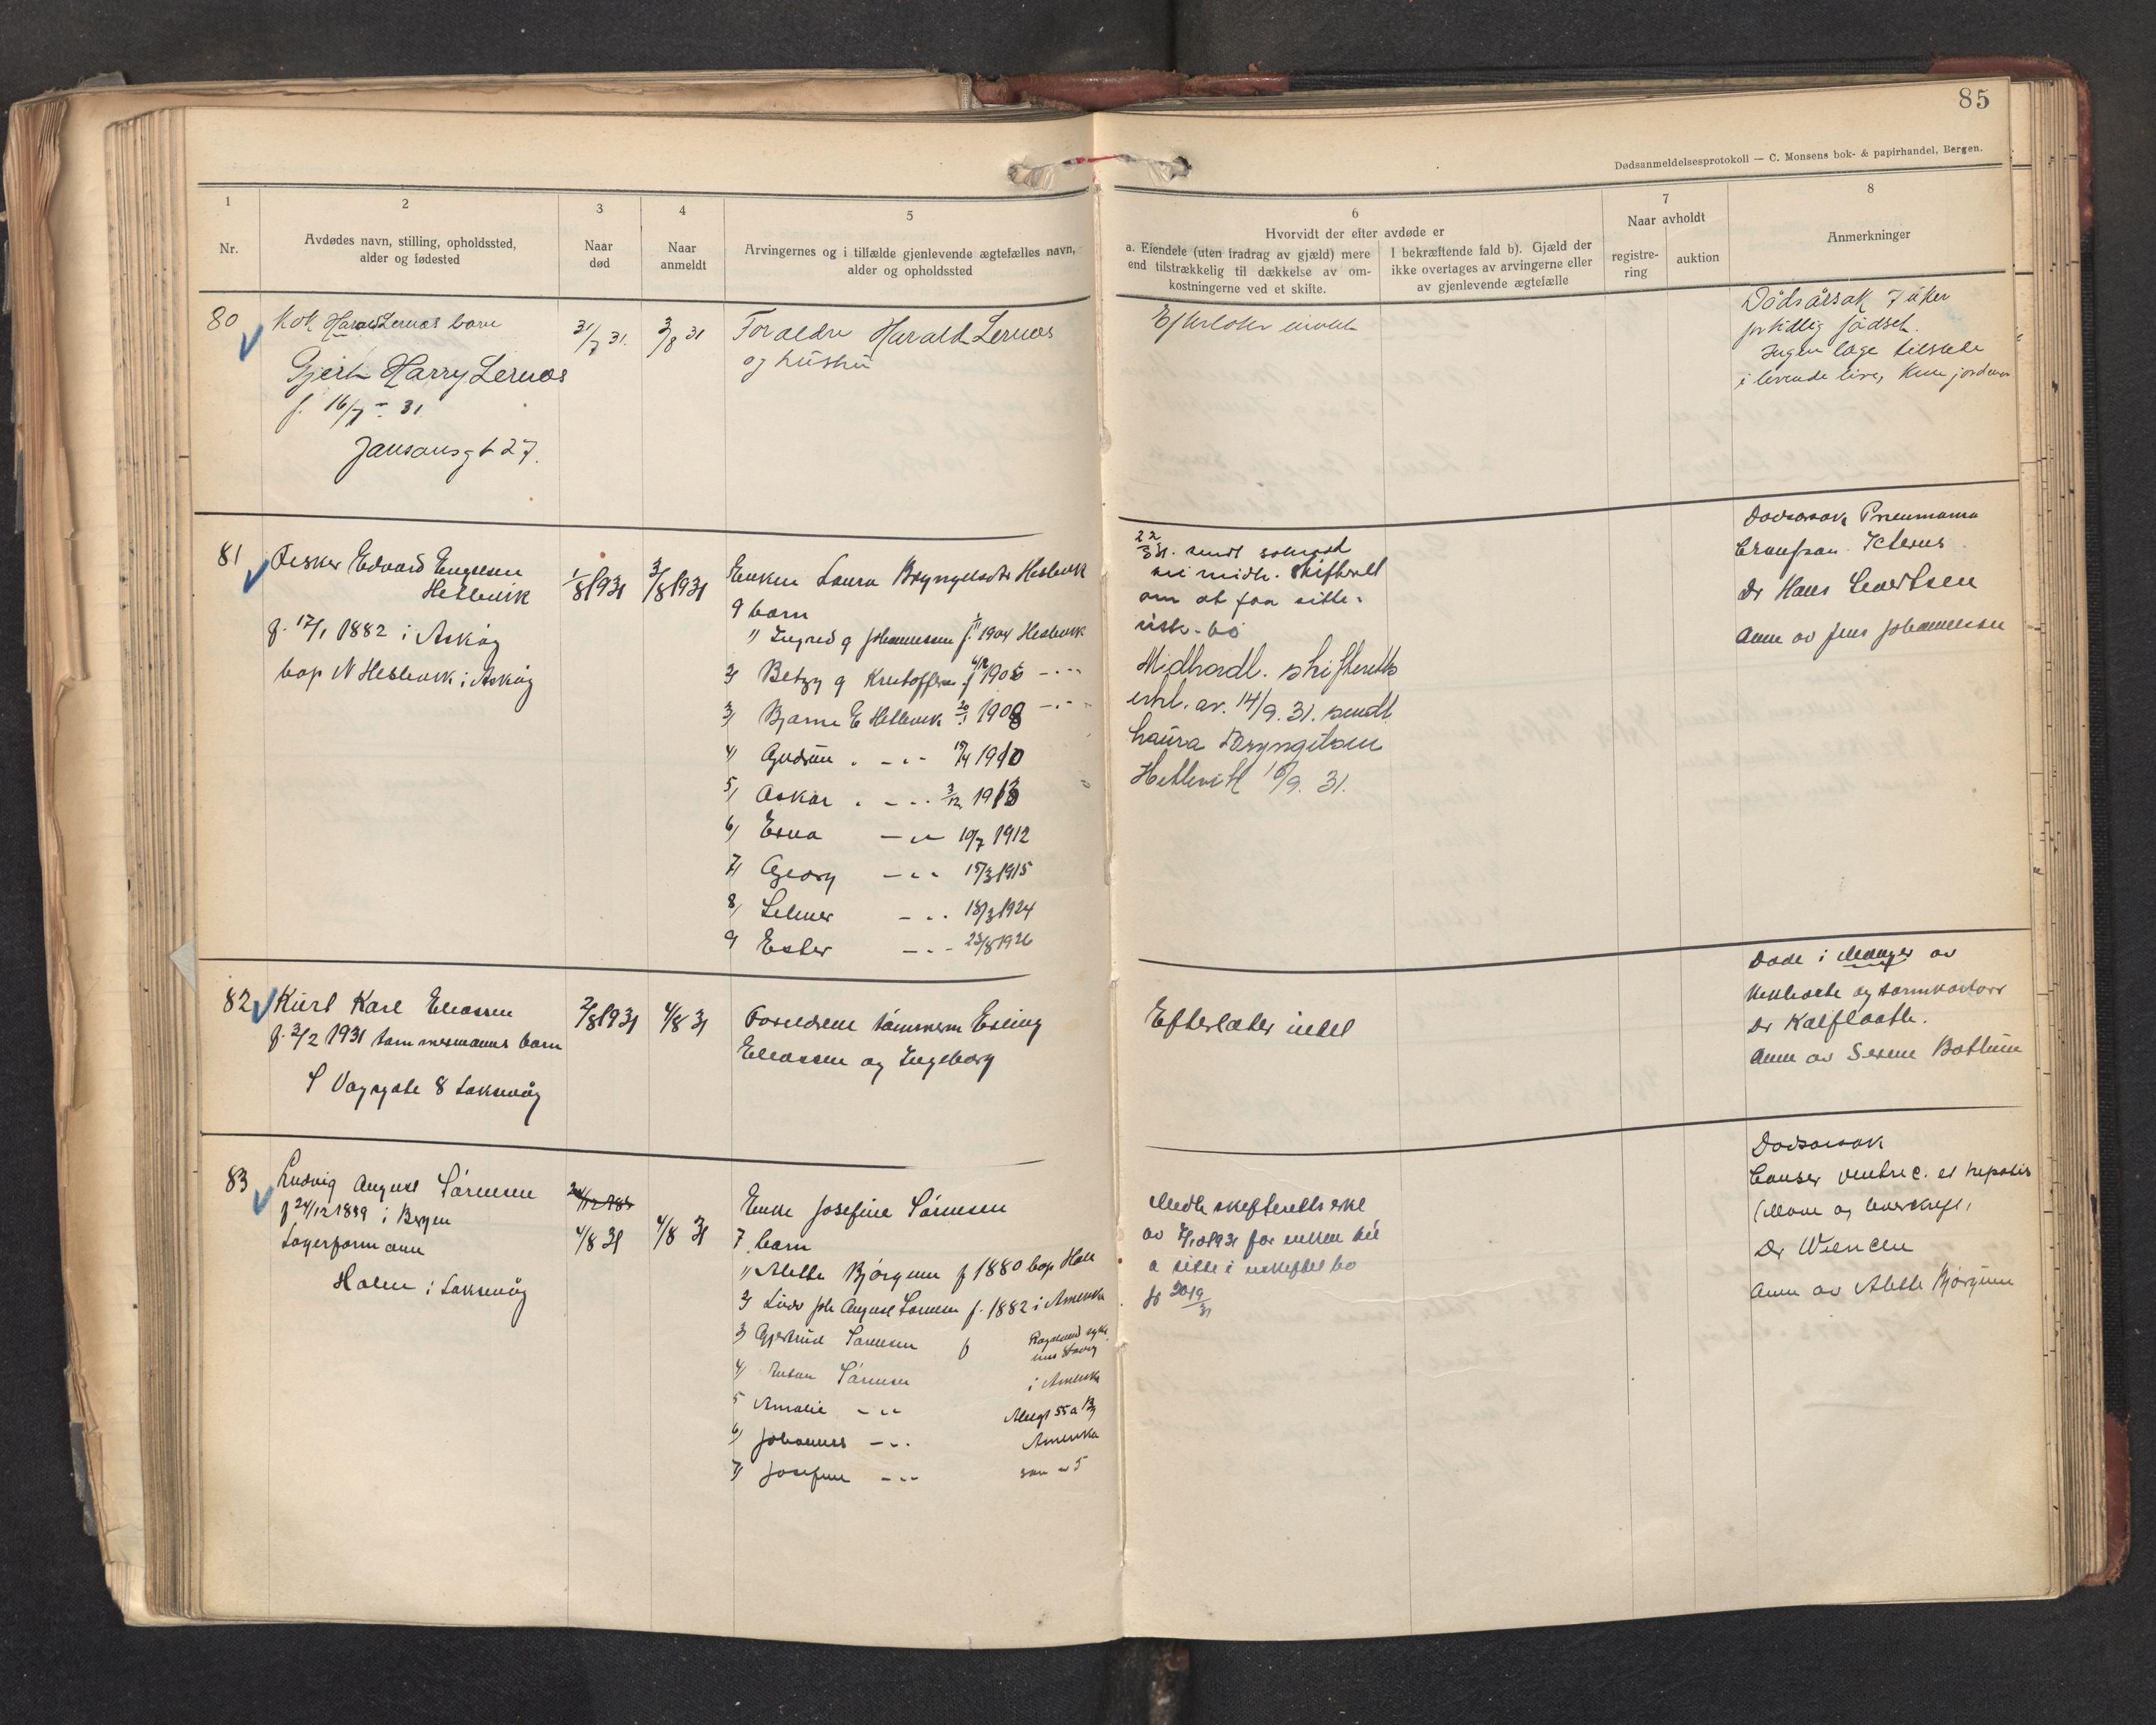 85
Dødsanmeldelsesprotokoll — C. Monsens bok- & papirhandel, Bergen.
1
Nr.
2
Avdødes navn, stilling, opholdssted,
alder og fødested
3
Naar
død
4
Naar
anmeldt
5
Arvingernes og i tilfælde gjenlevende ægtefælles navn,
alder og opholdssted
6
Hvorvidt der efter avdøde er
a. Eiendele (uten fradrag av gjæld) mere
end tilstrækkelig til dækkelse av om-
kostningerne ved et skifte.
I bekræftende fald b). Gjæld der
ikke overtages av arvingerne eller
av gjenlevende ægtefælle
7
Naar avholdt
registre-
ring
auktion
8
Anmerkninger
80
Kok Harald Lernæs barn
Gjert Harry Lernæs
f. 16/7 - 31.
Jansonsgt 27.
31/7 31.
3/8 31
Foreldre Harald Lernæs
og hustru
Efterlater intet
Dødsårsak 7 uker
for tidlig fødsel.
Ingen læge tilstede
i levende live, kun jordmor
81
Fisker Edvard Engelsen
Hetlevik
f. 17/1 1882 i Askøy
bop N Hetlevik i Askøy
1/8 1931
3/8 1931
Enken Laura Bryngelsdtr Hetlevik
9 barn
1) Ingrid g Johannessen f. 1904 Hetlevik
2) Betzy g Kristoffersen f 1906 -"-
3) Bjarne E Hetlevik 1908 -"-
4) Gudrun " -"- 1910
5) Oskar " -"- 3/12 1913
6) Erna -"- 10/7 1912
7) Georg -"- 15/3 1915
8) Selmer -"- 18/3 1924
9 Ester -"- 23/8 1926
22/8 31. sendt søknad
til midh. skifterett
om at faa sitte i
uisk. bo
Midhordl. skifteretts
erkl. av. 14/9. 31. sendt
Laura Bryngelsen
Hetlevik 16/9. 31.
Dødsårsak Pneumonia
Icterus
Dr Hans Evertsen
Anm av Jens Johannessen
82
Kurt Karl Eliassen
f. 3/2 1931 tømmermanns barn
S Vagsgate 8 Laksevåg
2/8 1931
4/8 31
Foreldrene tømmerm Erling
Eliassen og Ingeborg
Efterlater intet
Døde i Manger av
og tarmkatarr
Dr Kalfloth.
Anm av Serine
83
Ludvig August Sørensen
f 24/12 1849 i Bergen
Lagerformann
Holen i Laksevåg
4/8 31
4/8 31
Enke Josefine Sørensen
7 barn
1) Alette Bjørgum f 1880 bop Holen
2) Ludv Joh August Sørensen f. 1882 i Amerika
3) Gjertrud Sørensen f
4) Anton Sørensen i Amerika
5 Amalie -"-
6) Johannes -"- Amerika
7) Josefine -"- som nr 5
Midh skifteretts erkl
av 1931 for enken til
å sitte i uskiftet bo
Dødsårsak
Cancer ventric. et hepatis
(Mave og leverkreft)
Dr Wiencke
Anm av Alette Bjørgum